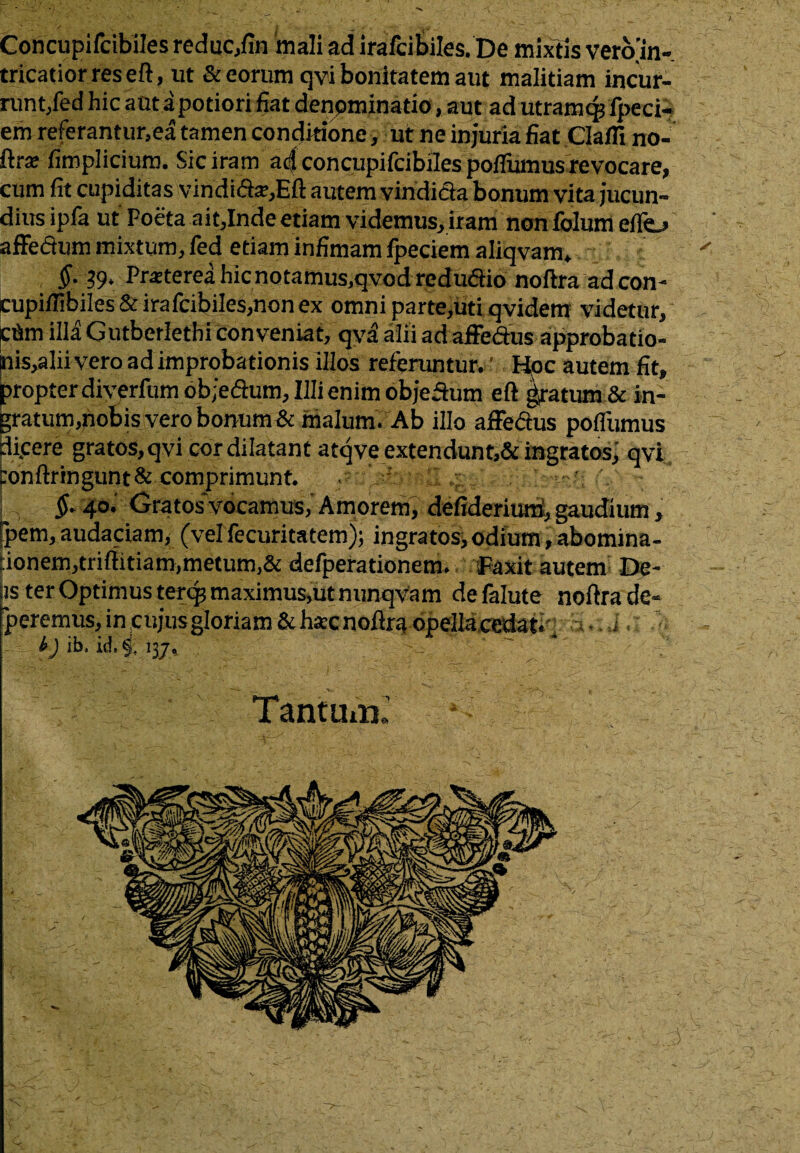 Concupiſcibiles reduc,ſin mali ad iraſcibiles. De mixtis vero in-
tricatior res eſt, ut & eorum qvi bonitatem aut malitiam incur-
runt,ſed hic aut à potiori fiat denominatio, aut ad utramqꝫ ſpeci-
em referantur,eâ tamen conditione, ut ne injuria fiat Claſſi no-
ſtræ ſimplicium. Sic iram ad concupiſcibiles poſſumus revocare,
cum ſit cupiditas vindictæ,Eſt autem vindicta bonum vita jucun-
dius ipſa ut Poëta ait,Inde etiam videmus, iram non ſolum eſſe
affectum mixtum, ſed etiam infimam ſpeciem aliqvam.
§. 39. Præterea hic notamus,qvod reductio noſtra ad con-
cupiſſibiles & iraſcibiles,non ex omni parte,uti qvidem videtur,
cùm illâ Gutberlethi conveniat, qvâ alii ad affectus approbatio-
nis,alii vero ad improbationis illos referuntur. Hoc autem fit,
propter diverſum objectum, Illi enim objectum eſt gratum & in-
gratum,nobis vero bonum & malum. Ab illo affectus poſſumus
dicere gratos, qvi cor dilatant atqve extendunt,& ingratos, qvi
conſtringunt & comprimunt.
§. 40. Gratos vocamus, Amorem, deſiderium, gaudium,
ſpem, audaciam, (vel ſecuritatem); ingratos, odium, abomina-
tionem,triſtitiam,metum,& deſperationem. Faxit autem De-
us ter Optimus terqꝫ maximus,ut nunqvam de ſalute noſtra de-
ſperemus, in cujus gloriam & hæc noſtra opella cedat.
b) ib. id. §. 137.
Tantum.